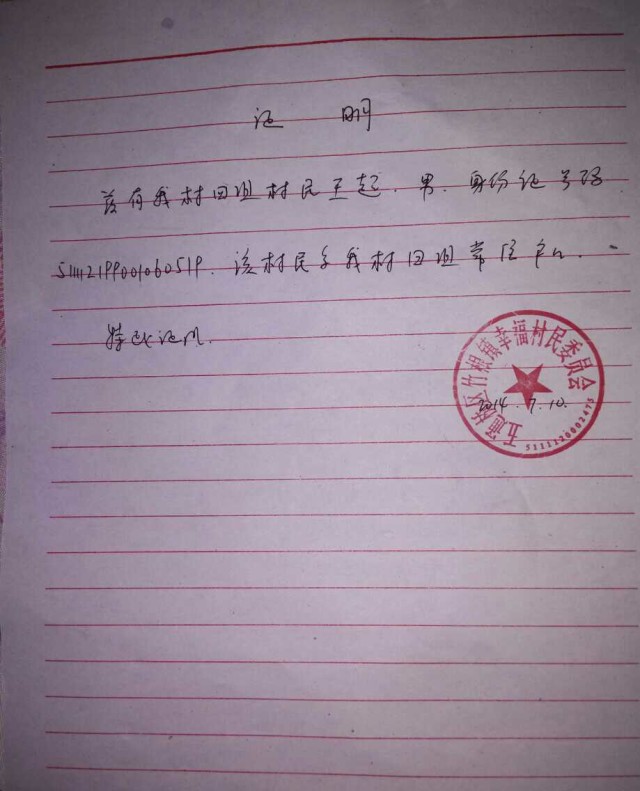 证 明
兹有我村四组村民王起.男.身份证号码
511112199001060519.该村民系我村四组常住户口.
特此证明.
五通桥区竹根镇幸福村民委员会
2014.7.10.
5111120002475